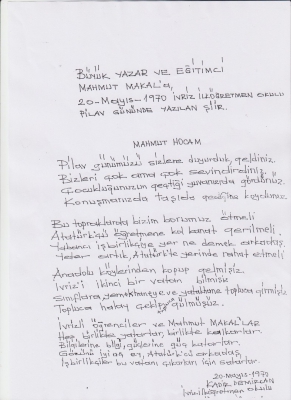 BÜYÜK YAZAR VE EĞİTİMCİ
MAHMUT MAKAL'a,
20-MAYIS-1970 İVRİZ İLKÖĞRETMEN OKULU
PİLAV GÜNÜNDE YAZILAN ŞİİR.
MAHMUT HOCAM
Pilav günümüzü sizlere duyurduk, geldiniz.
Bizleri çok ama çok sevindirdiniz.
Çocukluğunuzun geçtiği yuvanızda gördünüz.
Konuşmanızda Taşlıda
Bu topraklarda bizim borumuz ötmeli
Atatürk'çü öğretmene kol kanat gerilmeli.
Yabancı işbirlikçiye yer ne demek arkadaş,
Yeter artık, Atatürk'te yerinde rahat etmeli
Anadolu köylerinden kopup gelmişiz
İvriz'i ikinci bir vatan bilmişiz
Sınıflara yemekhaneye ve yatakhane topluca girmişiz
Topluca halay çekip gülmüşüz.
İvrizli öğrenciler ve Mahmut MAKAL'LAR
Hep birlikte yatarlar, birlikte kalkarlar.
Bilgilerine bilgi, güçlerine güç katarlar.
Gözünü iyi aç ey, Atatürk'çü arkadaş,
İşbirlikçiler bu vatanı çıkarları için satarlar.
20-Mayıs-1970
KADİR DEMİRCAN
İvriz İlköğretmen Okulu